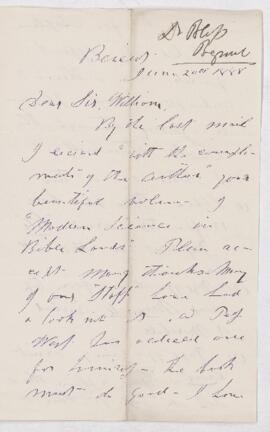 Dr Bliss
Beyrut
Beirut
June 20th 1888
Dear Sir William,
By the last mail
I received "with the compli-
ments of the author" your
beautiful volume of
"Modern Science in
Bible Lands". Please ac-
cept many thanks. Many
of our Staff have had
a look at it and Prof
West has ordered one
for himself - The book
must do good - I have